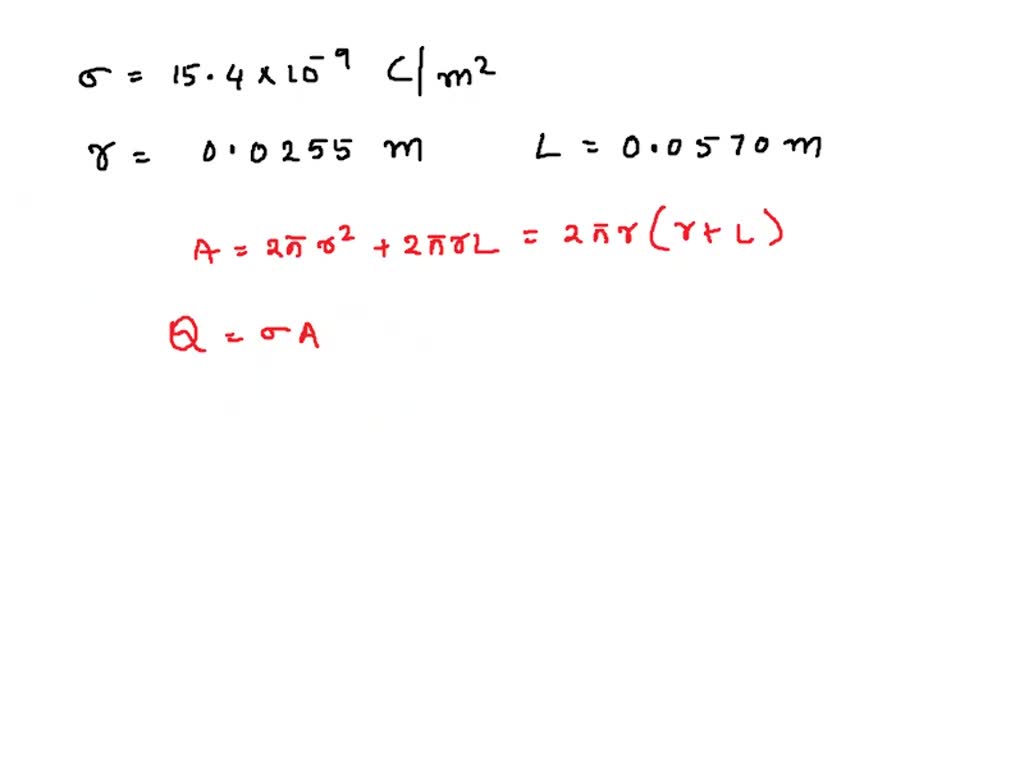 σ = 15.4 × 10⁻⁹ C/m²
r = 0.0255 m L = 0.0570 m
A = 2πr² + 2πrL = 2πr(r + L)
Q = σA